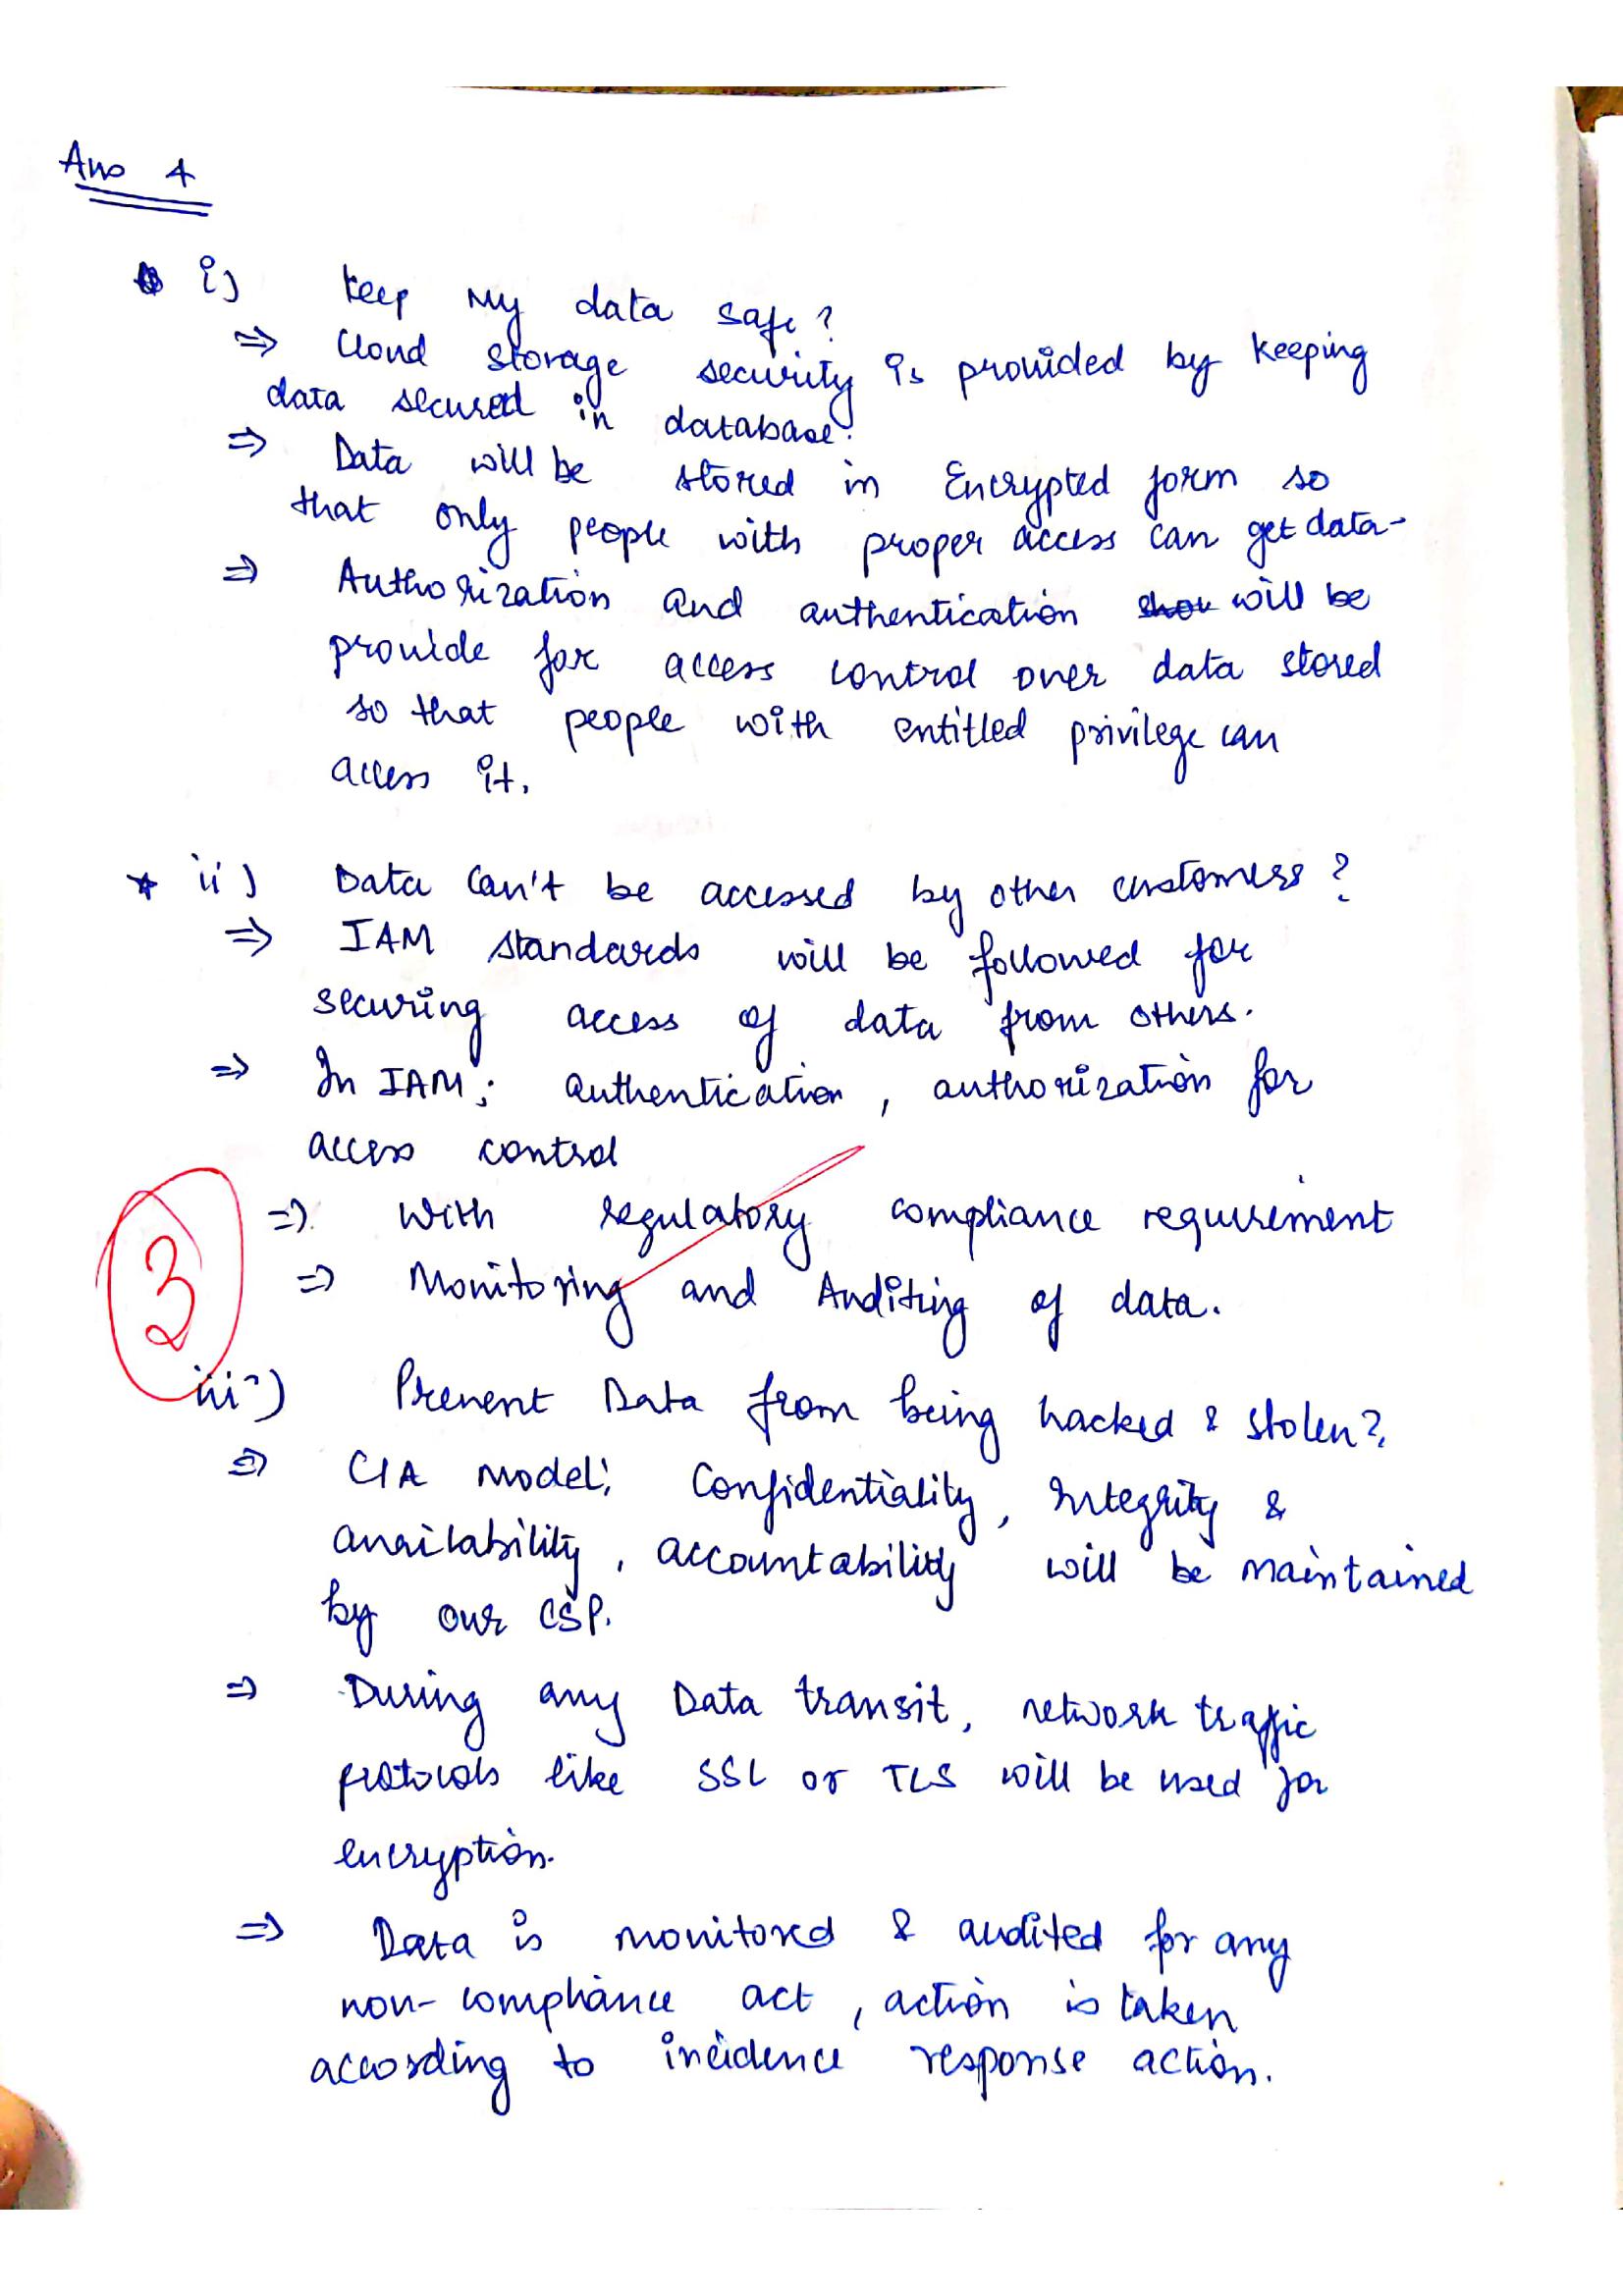 Ans 4
i) Keep My data safe?
⇒ Cloud storage security is provided by keeping
data secured in database.
⇒ Data will be stored in Encrypted form so
that only people with proper access can get data-
⇒ Authorization and authentication will be
provide for access control over data stored
so that people with entitled privilege can
access it.
* ii) Data Can't be accessed by other customers?
⇒ IAM standards will be followed for
securing access of data from others.
⇒ In IAM; authentication, authorization for
access control
⇒ With regulatory compliance requirement
3
⇒ Monitoring and Auditing of data.
iii) Prevent Data from being hacked & stolen?
⇒ CIA Model; Confidentiality, Integrity &
availability, accountability will be maintained
by our CSP.
⇒ During any Data transit, network traffic
protocols like SSL or TLS will be used for
encryption.
⇒ Data is monitored & audited for any
non-compliance act, action is taken
according to incidence response action.